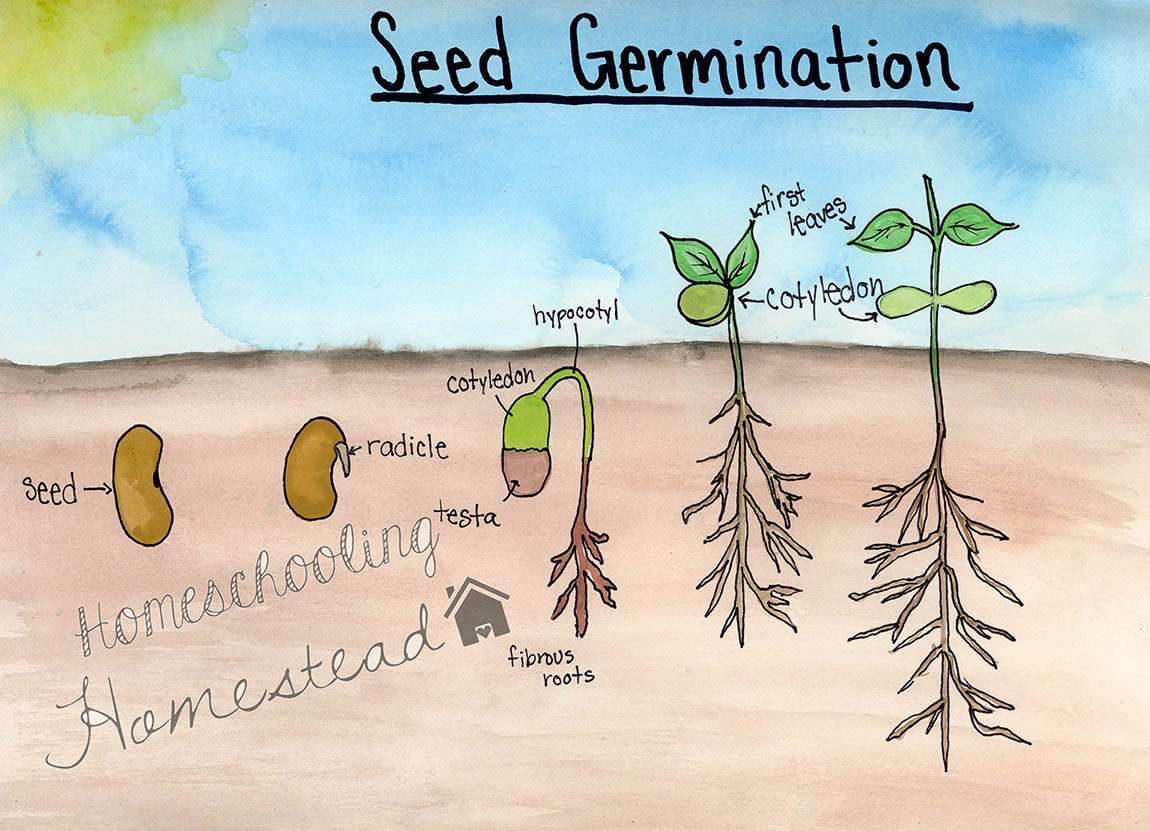 Seed Germination
first
leaves
cotyledon
hypocotyl
cotyledon
radicle
seed
testa
Homeschooling
Homestead
fibrous
roots